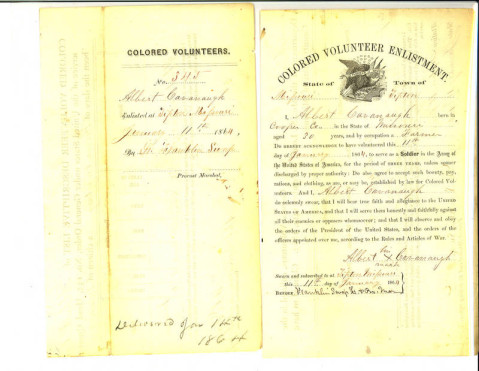 COLORED VOLUNTEERS.
No. 343
Albert Cavanaugh
Enlisted at Tipton Missouri
January 11th 1864,
By
Provost Marshal,
Delivered Jan 14th
1864
COLORED VOLUNTEER ENLISTMENT.
State of Town of
Missouri Tipton
I, Albert Cavanaugh born in
Cooper Co in the State of Missouri
aged 20 years, and by occupation a Farmer
DO HEREBY ACKNOWLEDGE to have volunteered this 11th
day of January 1864, to serve as a Soldier in the Army of
the United States of America, for the period of THREE YEARS, unless sooner
discharged by proper authority; Do also agree to accept such bounty, pay,
rations, and clothing, as are, or may be, established by law for Colored Vol-
unteers. And I, Albert Cavanaugh
do solemnly swear, that I will bear true faith and allegiance to the UNITED
STATES OF AMERICA, and that I will serve them honestly and faithfully against
all their enemies or opposers whomsoever; and that I will observe and obey
the orders of the President of the United States, and the orders of the
officers appointed over me, according to the Rules and Articles of War.
his
Albert X Cavanaugh
mark
Sworn and subscribed to at Tipton Missouri
this 11th day of January 1864
BEFORE Franklin